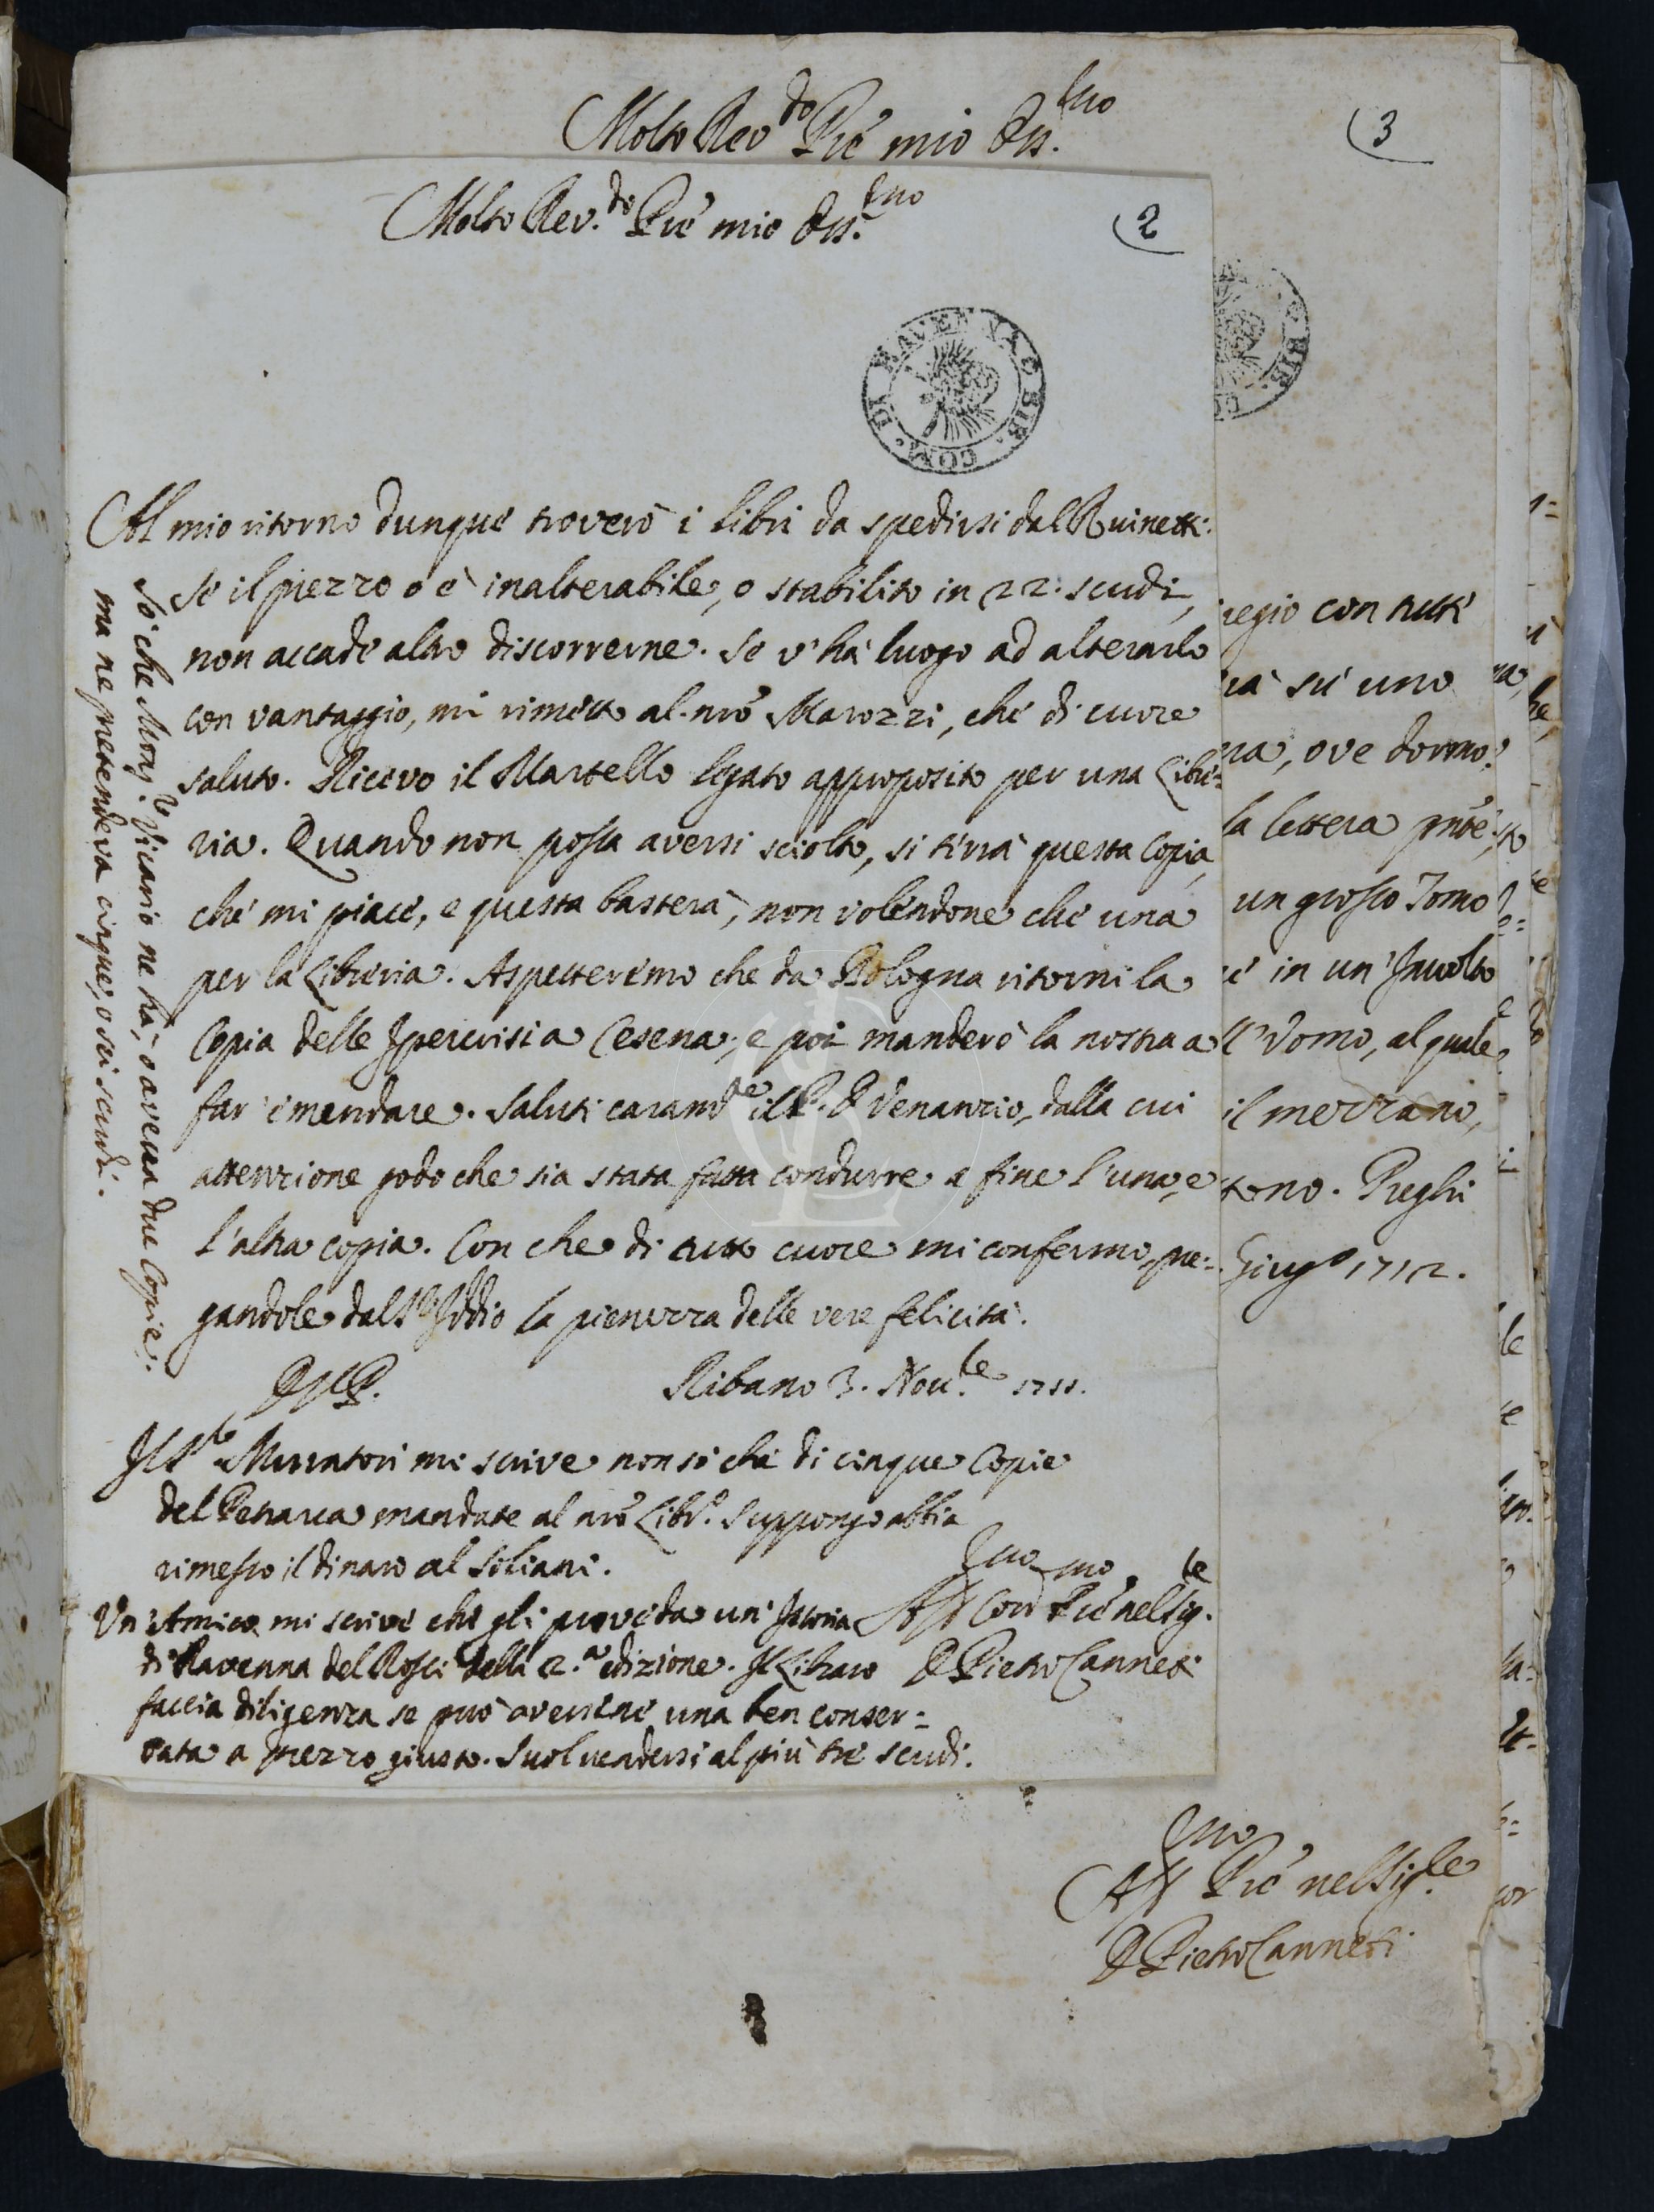 Molto Rev.do P.re mio Oss.mo
3
Molto Rev.do P.re mio Oss.mo
2
COM. DI RAVENNA BIB.
Al mio ritorno dunque troverò i libri da spedirsi dal Ruinetti.
Se il prezzo o è inalterabile, o stabilito in 22. scudi,
non accade altro discorrerne. Se v'hà luogo ad alterarlo
con vantaggio, mi rimetto al nrõ Marozzi, che di cuore
saluto. Ricevo il Martello legato approposito per una Libre=
ria. Quando non possa aversi sciolto, si tirrà questa Copia,
che mi piace, e questa basterà, non volendone che una
per la Libreria. Aspetteremo che da Bologna ritorni la
Copia delle Ipercrisi a Cesena; e poi manderò la nostra a
far emendare. Saluti caramte il P. D. Venanzio, dalla cui
attenzione godo che sia stata fatta condurre a fine l'una, e
l'altra copia. Con che di tutto cuore mi confermo, pre=
gandole dal Sig. Iddio la pienezza delle vere felicità.
Ribano 3. Nov.le 1711.
Il S.le Muratori mi scrive non sò che di cinque Copie
del Petrarca mandate al nrõ Libr.o Suppongo abbia
rimesso il dinaro al Soliani.
Un'Amico mi scrive che gli proveda un'Istoria
di Ravenna del Rossi della 2.a edizione. Il Libraro
faccia diligenza se può avessene una ben conser=
vata a prezzo giusto. Suol vendersi al più tre scudi.
Aff.mo Con P.re nel Sig.le
D Pietro Canneti
Sò che Mons.r Vicario ne hà, o aveva due Copie;
ma ne pretendeva cinque, o sei scudi.
regio con tutti
rà sù uno
ra, ove dormo
la lettera pñte
un grosso Tomo
è in un'Involto
l'Uomo, al quale
il mezzano,
tono. Preghi
Giug.o 1712.
Aff.mo P.re nel Sig.le
D Pietro Canneti